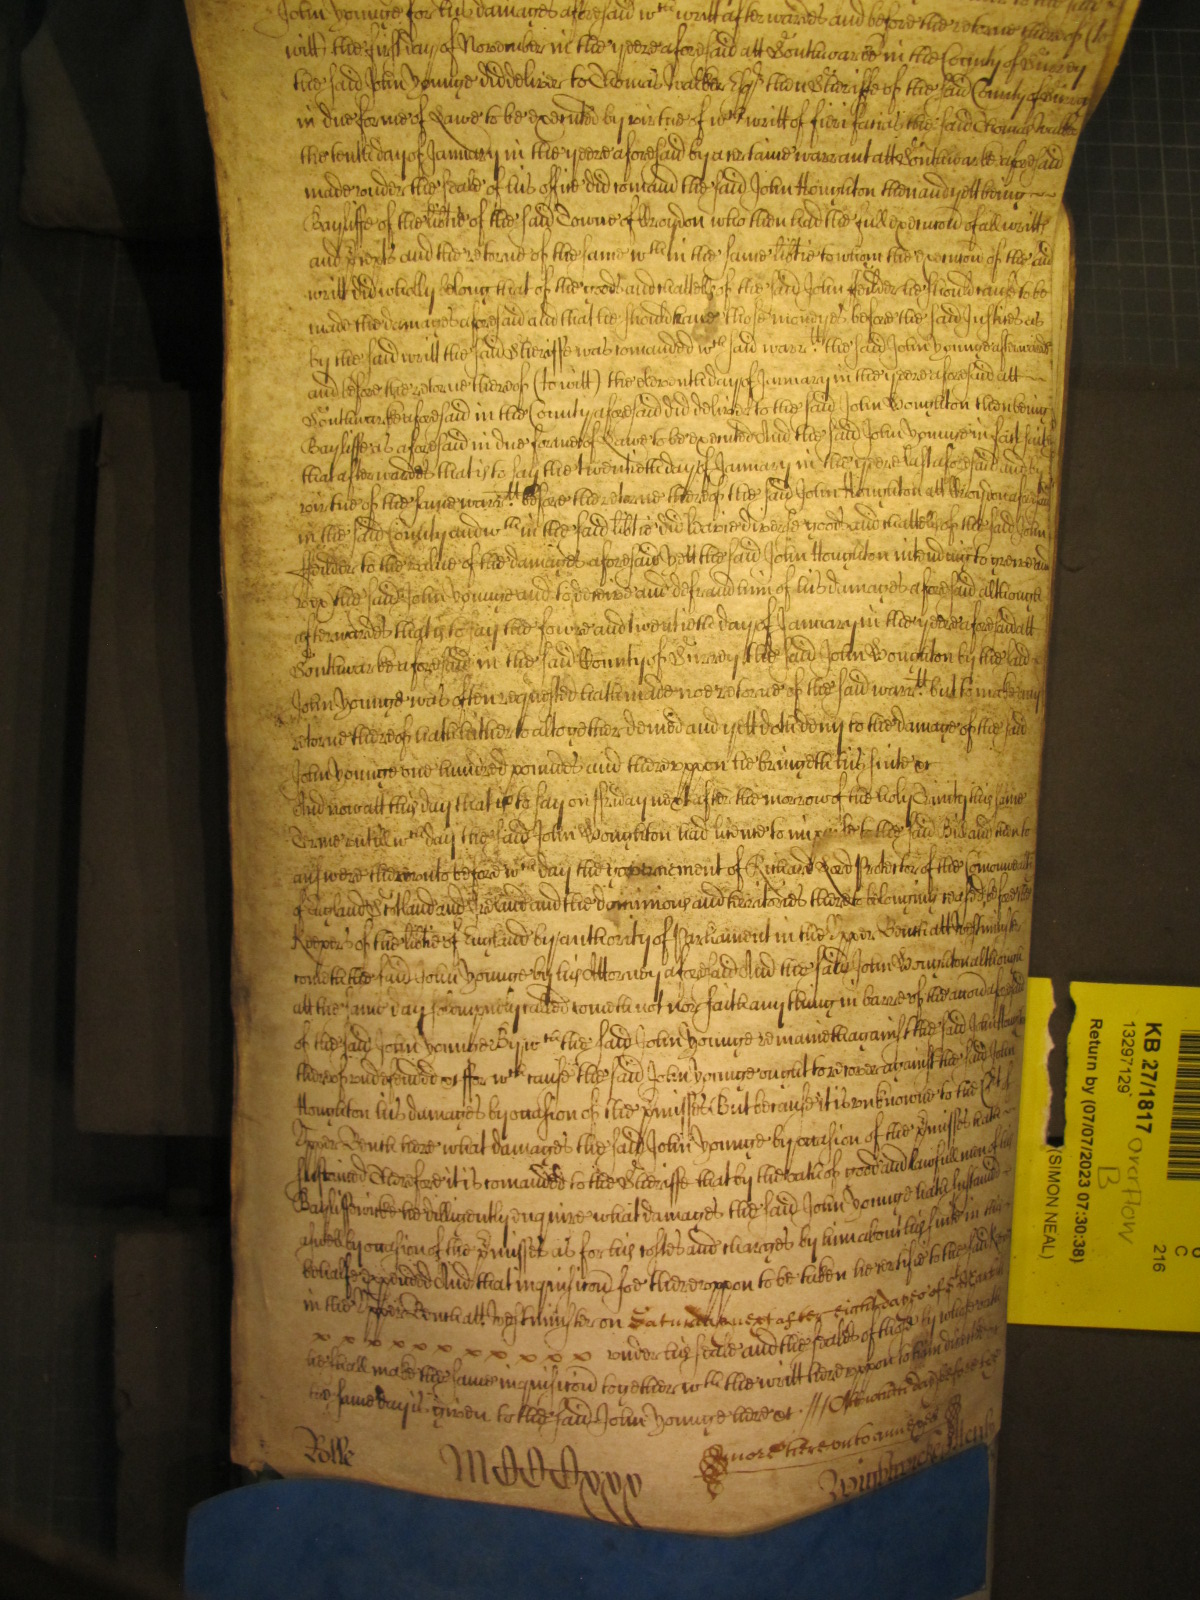 John Younge for his damages aforesaid wch writt afterwards and before the retorne thereof (to
witt) the first day of November in the yeere aforesaid att Southwarke in the County of Surrey
the said John Younge did deliver to Thomas Walker Esqr then Sheriffe of the said County of Surrey
in due forme of Lawe to be executed by virtue of wch writt of fieri facias the said Thomas Walker
the tenth day of January in the yeere aforesaid by a certaine warrant att Southwarke aforesaid
made under the seale of his office did comaund the said John Houghton then and yett being
Bayliffe of the libtie of the said Towne of Croydon who then had the full execucon of all writts
and and the retorne of the same wthin the same libtie to whom the execucon of the said
writt did wholly belong that of the goods and chattells of the said John Feilder he should cause to be
made the damages aforesaid and that he should have those moneyes before the said Justices as
by the said writt the said Sheriffe was comanded wch said warrtt the said John Younge afterwards
and before the retorne thereof (to witt) the eleventh day of January in the yeere aforesaid att
Southwarke aforesaid in the County aforesaid did deliver to the said John Houghton then being
Bayliffe as aforesaid in due forme of Lawe to be executed And the said John Younge in fact saith
that afterwards that is to say the twentieth day of January in the yeere last aforesaid and by
virtue of the same warrtt before the retorne thereof the said John Houghton att Croydon aforesaid
in the said County and wthin the said libtie did leavie diverse goods and chattells of the said John
Feilder to the value of the damages aforesaid yett the said John Houghton intending to greive and
vex the said John Younge and to deceive and defraud him of his damages aforesaid although
afterwards that is to say the fowre and twentieth day of January in the yeere aforesaid att
Southwarke aforesaid in the said County of Surrey the said John Houghton by the said
John Younge was often requested hath made noe retorne of the said warrtt but to make any
retorne thereof hath hitherto altogether denied and yett doth deny to the damage of the said
John Younge one hundred pounds and thereuppon he bringeth his suite &c
And now att this day that is to say on Fryday next after the morrow of the holy Trinity this same
Terme untill wch day the said John Houghton had licence to to the said Bill and then to
answere thereunto before wch day the government of Richard Lord Protector of the Comonwealth
of England Scotland and Ireland and the dominions and territories thereto belonging ceased before the
Keepers of the libtie of England by authority of Parliament in the Upper Bench att Westminster
cometh the said John Younge by his Attorney aforesaid And the said John Houghton although
att the same day solempnely called cometh not nor saith any thing in barre of the accon aforesaid
of the said John Younge By wch the said John Younge remaineth against the said John Houghton
thereof undefended &c ffor wch cause the said John Younge ought to recover against the said John
Houghton his damages by occasion of the pmisses But because it is unknowne to the Cort of
Upper Bench here what damages the said John Younge by occasion of the pmisses hath
sustained Therefore it is comanded to the Sheriffe that by the oath of good and lawfull men of his
Bayliffwicke he dilligently enquire what damages the said John Younge hath sustained
aswell by occasion of the pmisses as for his costes and charges by him about his suite in this
behalfe expended And that inquisicon soe thereuppon to be taken he certifie to the said Keepers
in the Upper Bench att Westminster on Saturday next after eight dayes of St Martin
x x x x x x x x x x x under his seale and the seales of those by whose oath
he shall make the same inquisicon together wth the writt thereuppon to him directed
the same day is given to the said John Younge here &c
more hereunto annexed
Rolle MCCCCxxx
KB 27/1817
13297129
Return by (07/07/2023 07:30:38)
(SIMON NEAL)
Overflow
B
216
C